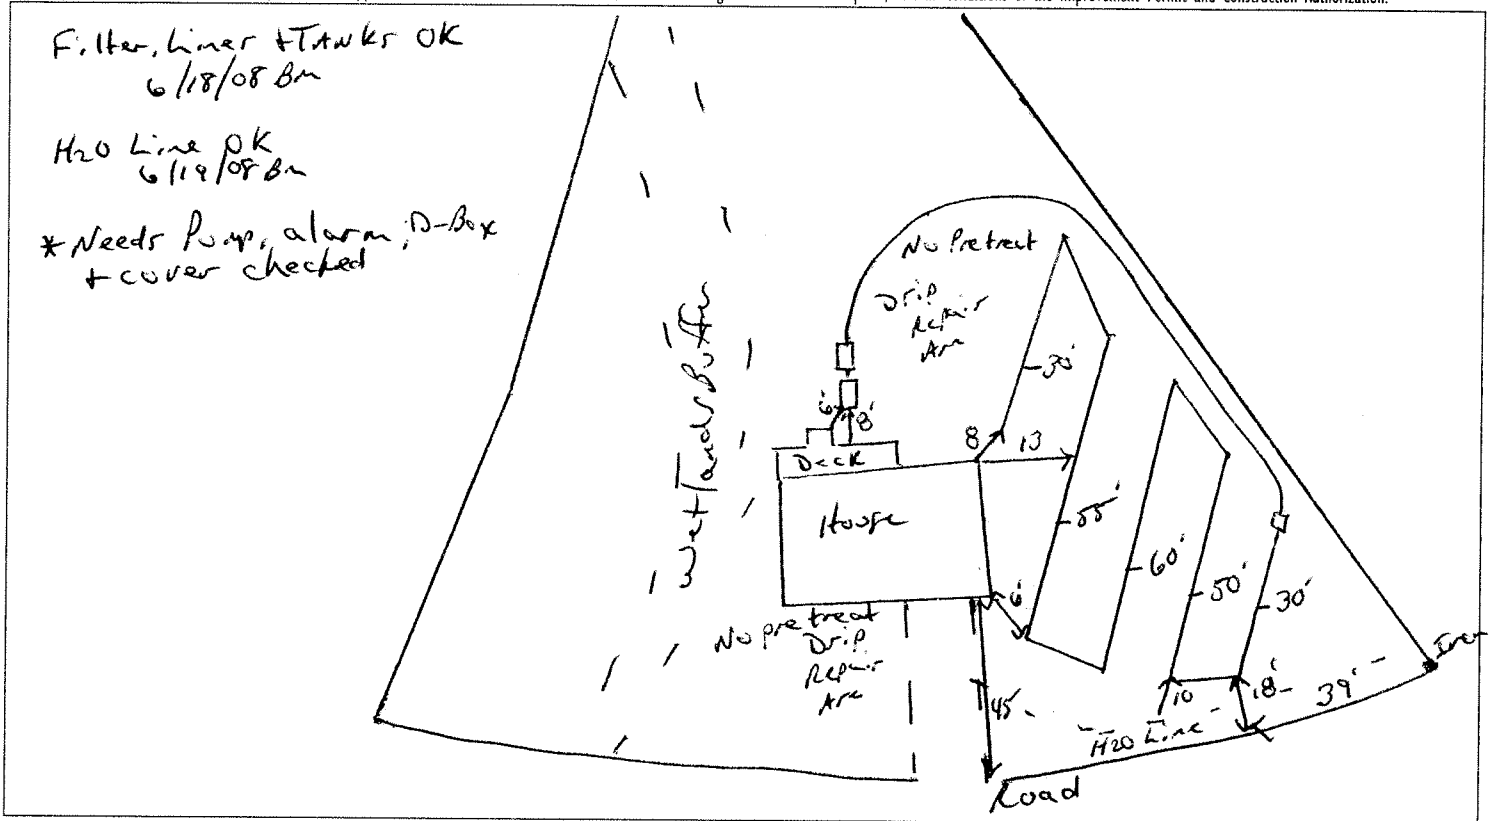 conditions of the Improvement Permit and Construction Authorization.
Filter, Lines + TANKS OK
6/18/08 Bm
H20 Line OK
6/19/08 Bm
* Needs Pump, alarm, D-Box
+ cover checked
No Pretreat
Drip
Repair
Are
30'
6'
8'
8
13
Deck
House
Wetlands Buffer
55'
60'
50'
30'
6'
No pretreat
Drip
Repair
Are
45'
10
18'
39'
Iron
H20 Line
Road